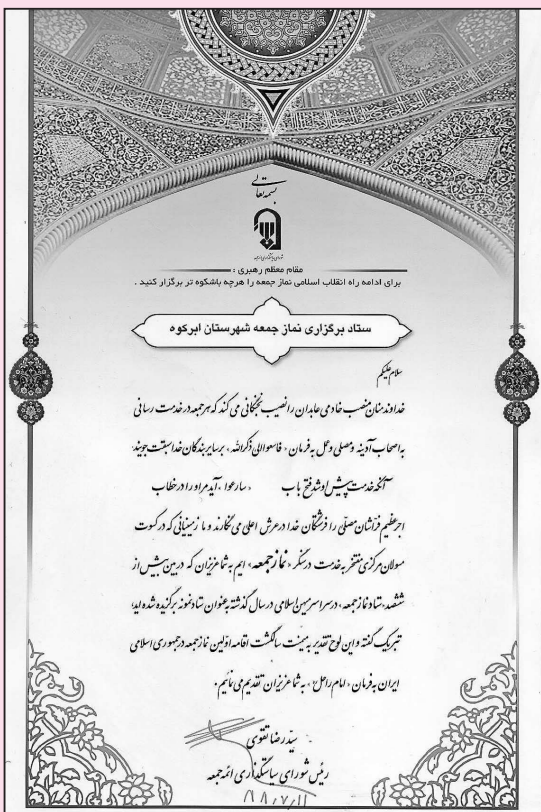 بسمه تعالی
مقام معظم رهبری :
برای ادامه راه انقلاب اسلامی نماز جمعه را هرچه باشکوه تر برگزار کنید .
ستاد برگزاری نماز جمعه شهرستان ابرکوه
سلام علیکم
خداوند منان منصب خادمی عابدان را نصیب نخبگانی می کند که هر جمعه در خدمت رسانی
به اصحاب آدینه و مصلی و عمل به فرمان « فاسعوا الی ذکر الله » بر سایر بندگان خدا سبقت جویند؛
آنکه خدمت پیش او شد فتح باب « سارعوا » آید مر او را در خطاب
اجر عظیم فراشان مصلّی را فرشتگان خدا در عرش اعلی می نگارند و ما زمینیانی که در کسوت
مسولان مرکزی مفتخر به خدمت در سنگر « نماز جمعه » ایم به شما عزیزان که در بین بیش از
ششصد « ستاد نماز جمعه » در سراسر میهن اسلامی در سال گذشته به عنوان ستاد نمونه برگزیده شده اید؛
تبریک گفته و این لوح تقدیر به میمنت سالگشت اقامه اولین نماز جمعه در جمهوری اسلامی
ایران به فرمان « امام راحل » به شما عزیزان تقدیم می نمائیم .
سیّد رضا تقوی
رئیس شورای سیاستگذاری ائمه جمعه
۸۸,۷,۱۱